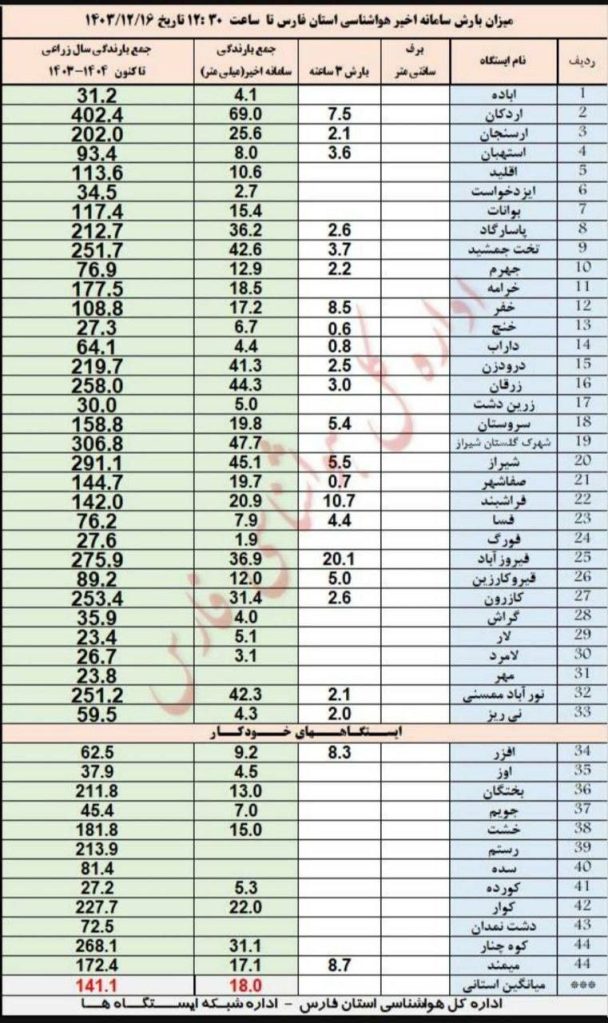 میزان بارش سامانه اخیر هواشناسی استان فارس تا ساعت ۱۲:۳۰ تاریخ ۱۴۰۳/۱۲/۱۶
ردیف نام ایستگاه برف سانتی متر بارش ۳ ساعته جمع بارندگی سامانه اخیر(میلی متر) جمع بارندگی سال زراعی تاکنون ۱۴۰۴-۱۴۰۳
۱ اباده 4.1 31.2
۲ اردکان 7.5 69.0 402.4
۳ ارسنجان 2.1 25.6 202.0
۴ استهبان 3.6 8.0 93.4
۵ اقلید 10.6 113.6
۶ ایزدخواست 2.7 34.5
۷ بوانات 15.4 117.4
۸ پاسارگاد 2.6 36.2 212.7
۹ تخت جمشید 3.7 42.6 251.7
۱۰ جهرم 2.2 12.9 76.9
۱۱ خرامه 18.5 177.5
۱۲ خفر 8.5 17.2 108.8
۱۳ خنج 0.6 6.7 27.3
۱۴ داراب 0.8 4.4 64.1
۱۵ درودزن 2.5 41.3 219.7
۱۶ زرقان 3.0 44.3 258.0
۱۷ زرین دشت 5.0 30.0
۱۸ سروستان 5.4 19.8 158.8
۱۹ شهرک گلستان شیراز 47.7 306.8
۲۰ شیراز 5.5 45.1 291.1
۲۱ صفاشهر 0.7 19.7 144.7
۲۲ فراشبند 10.7 20.9 142.0
۲۳ فسا 4.4 7.9 76.2
۲۴ فورگ 1.9 27.6
۲۵ فیروزآباد 20.1 36.9 275.9
۲۶ قیروکارزین 5.0 12.0 89.2
۲۷ کازرون 2.6 31.4 253.4
۲۸ گراش 4.0 35.9
۲۹ لار 5.1 23.4
۳۰ لامرد 3.1 26.7
۳۱ مهر 23.8
۳۲ نورآباد ممسنی 2.1 42.3 251.2
۳۳ نی ریز 2.0 4.3 59.5
ایستگاههای خودکار
۳۴ افزر 8.3 9.2 62.5
۳۵ اوز 4.5 37.9
۳۶ بختگان 13.0 211.8
۳۷ جویم 7.0 45.4
۳۸ خشت 15.0 181.8
۳۹ رستم 213.9
۴۰ سده 81.4
۴۱ کورده 5.3 27.2
۴۲ کوار 22.0 227.7
۴۳ دشت نمدان 72.5
۴۴ کوه چنار 31.1 268.1
۴۴ میمند 8.7 17.1 172.4
*** میانگین استانی 18.0 141.1
اداره کل هواشناسی استان فارس - اداره شبکه ایستگاه ها
اداره کل هواشناسی فارس